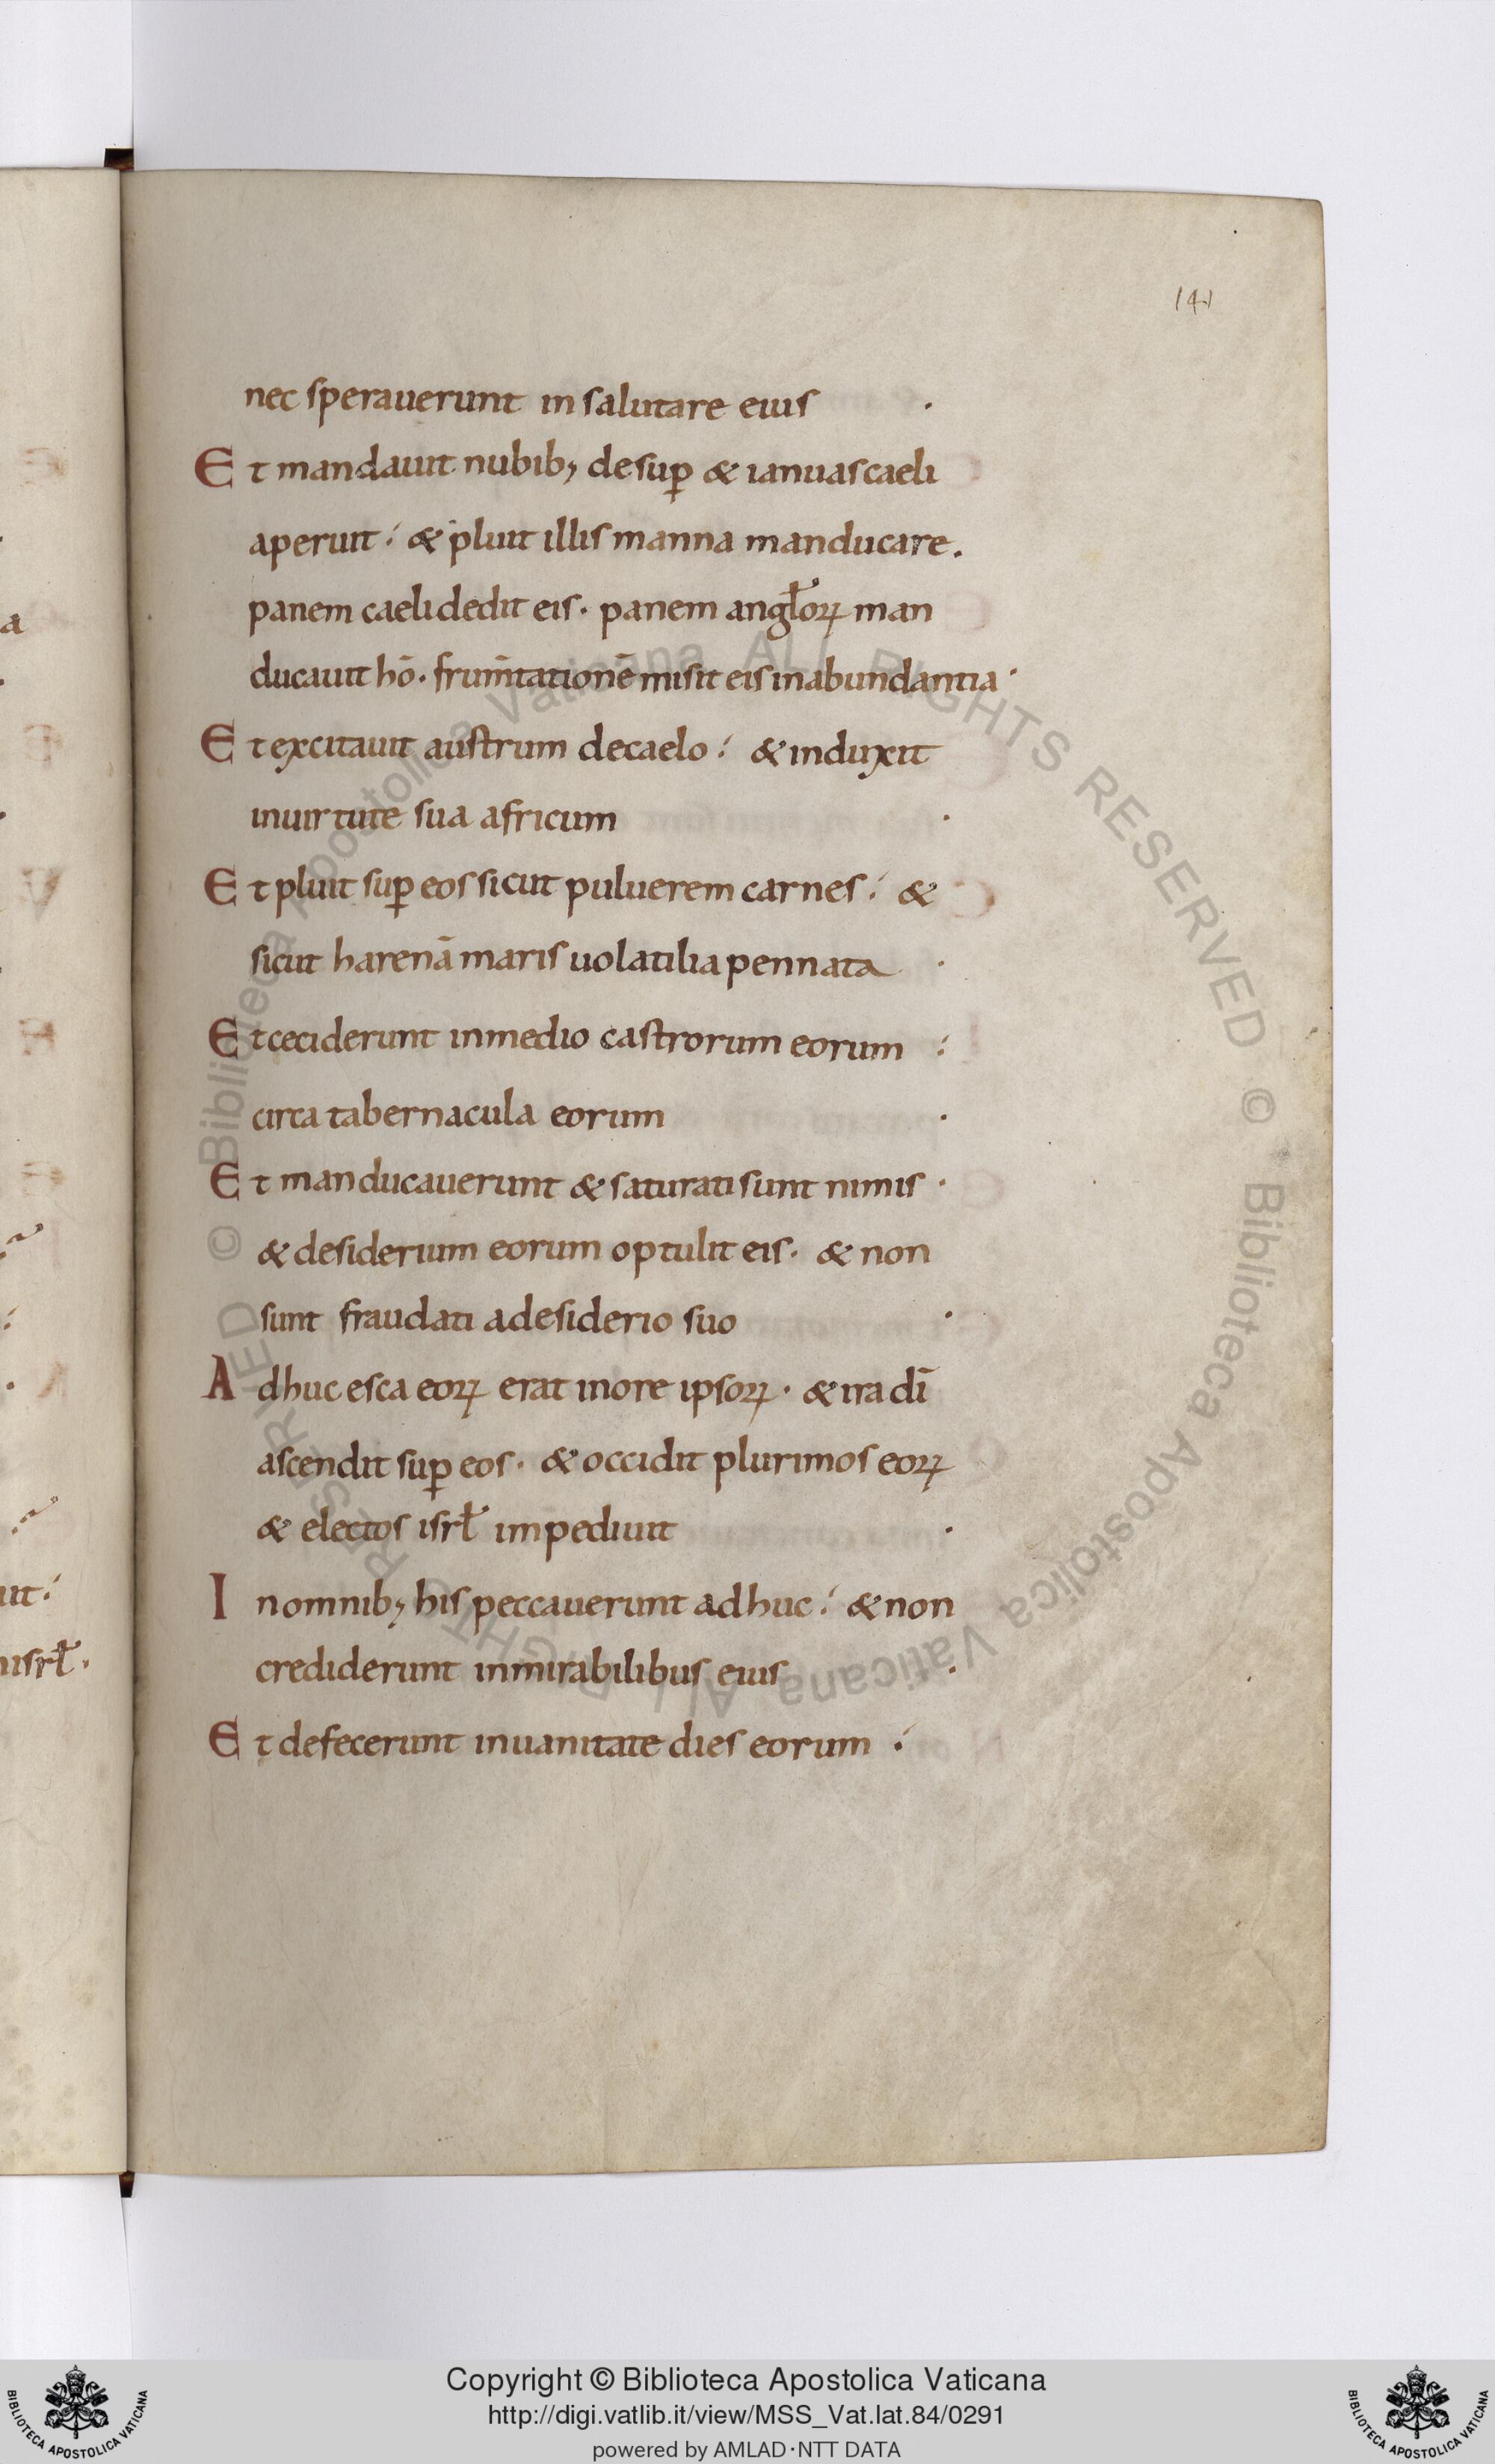 141
nec sperauerunt in salutare eius .
Et mandauit nubib; desup̱ & ianuas caeli
aperuit : & pluit illis manna manducare .
panem caeli dedit eis . panem angłorꝝ man
ducauit hō . frum̄tationē misit eis in abundantia .
Et excitauit austrum de caelo : & induxit
in uirtute sua africum .
Et pluit sup̱ eos sicut puluerem carnes : &
sicut harenā maris uolatilia pennata .
Et ceciderunt in medio castrorum eorum :
circa tabernacula eorum .
Et manducauerunt & saturati sunt nimis .
& desiderium eorum optulit eis . & non
sunt fraudati a desiderio suo .
Adhuc esca eoꝝ erat in ore ipsoꝝ . & ira dī
ascendit sup̱ eos . & occidit plurimos eoꝝ
& electos isrł impediuit .
In omnib; his peccauerunt adhuc : & non
crediderunt in mirabilibus eius .
Et defecerunt in uanitate dies eorum :
a
it :
isrł .
© Biblioteca Apostolica Vaticana ALL RIGHTS RESERVED © Biblioteca Apostolica Vaticana ALL RIGHTS RESERVED
Copyright © Biblioteca Apostolica Vaticana
http://digi.vatlib.it/view/MSS_Vat.lat.84/0291
powered by AMLAD·NTT DATA
BIBLIOTECA APOSTOLICA VATICANA
BIBLIOTECA APOSTOLICA VATICANA